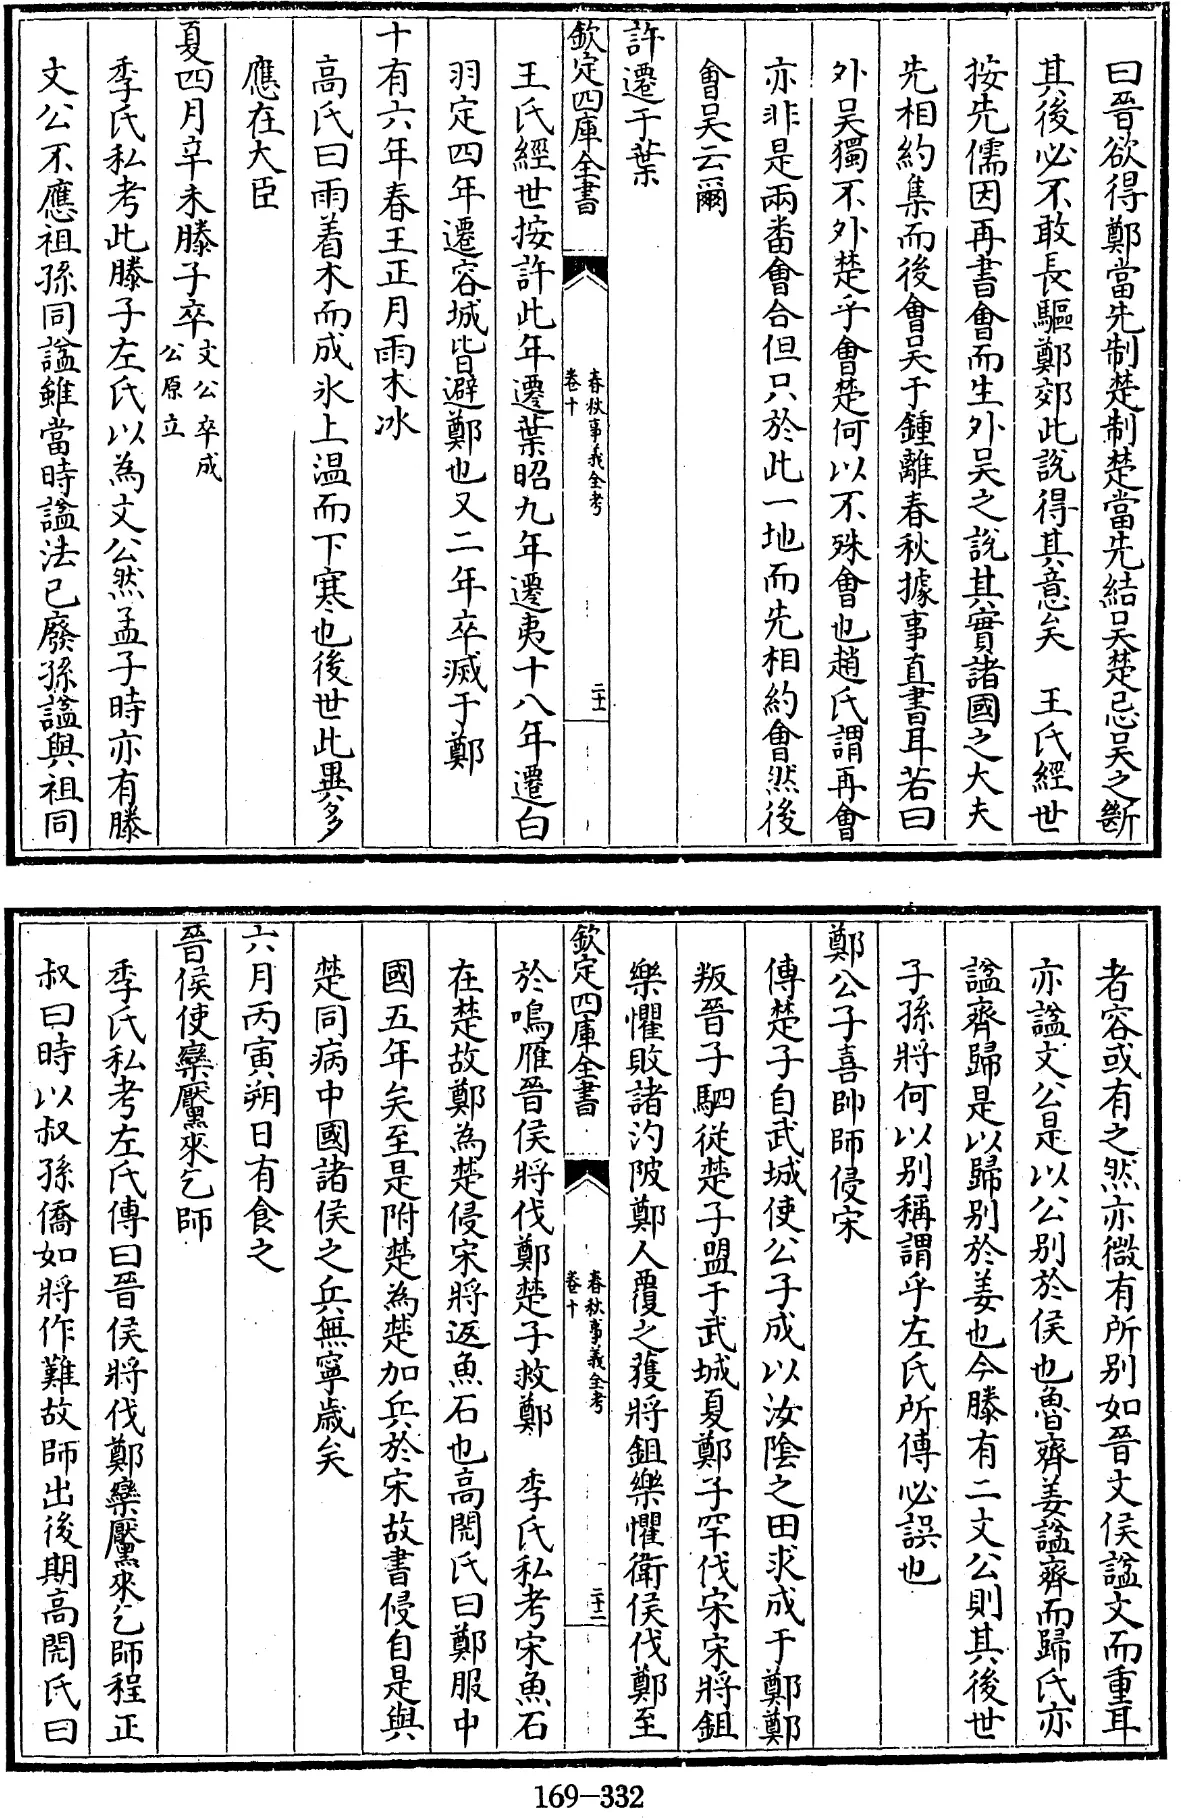 曰晉欲得鄭當先制楚制楚當先結吴楚忌吴之斷
其後必不敢長驅鄭郊此說得其意矣　王氏經世
按先儒因再書會而生外吴之說其實諸國之大夫
先相約集而後會吴于鍾離春秋據事直書耳若曰
外吴獨不外楚乎會楚何以不殊會也趙氏謂再會
亦非是兩番會合但只於此一地而先相約會然後
會吴云爾
許遷于葉
欽定四庫全書
春秋事義全考
卷十
二十一
王氏經世按許此年遷葉昭九年遷夷十八年遷白
羽定四年遷容城皆避鄭也又二年卒滅于鄭
十有六年春王正月雨木冰
高氏曰雨着木而成氷上温而下寒也後世此異多
應在大臣
夏四月辛未滕子卒文公卒成
公原立
季氏私考此滕子左氏以為文公然孟子時亦有滕
文公不應祖孫同諡雖當時諡法已廢孫諡與祖同
者容或有之然亦微有所别如晉文侯諡文而重耳
亦諡文公是以公别於侯也魯齊姜諡齊而歸氏亦
諡齊歸是以歸别於姜也今滕有二文公則其後世
子孫將何以别稱謂乎左氏所傳必誤也
鄭公子喜帥師侵宋
傳楚子自武城使公子成以汝陰之田求成于鄭鄭
叛晉子駟從楚子盟于武城夏鄭子罕伐宋宋將鉏
樂懼敗諸汋陂鄭人覆之獲將鉏樂懼衛侯伐鄭至
欽定四庫全書
春秋事義全考
卷十
二十二
於鳴雁晉侯將伐鄭楚子救鄭　季氏私考宋魚石
在楚故鄭為楚侵宋將返魚石也高閌氏曰鄭服中
國五年矣至是附楚為楚加兵於宋故書侵自是與
楚同病中國諸侯之兵無寧歲矣
六月丙寅朔日有食之
晉侯使欒黶來乞師
季氏私考左氏傳曰晉侯將伐鄭欒黶來乞師程正
叔曰時以叔孫僑如將作難故師出後期高閌氏曰
169-332